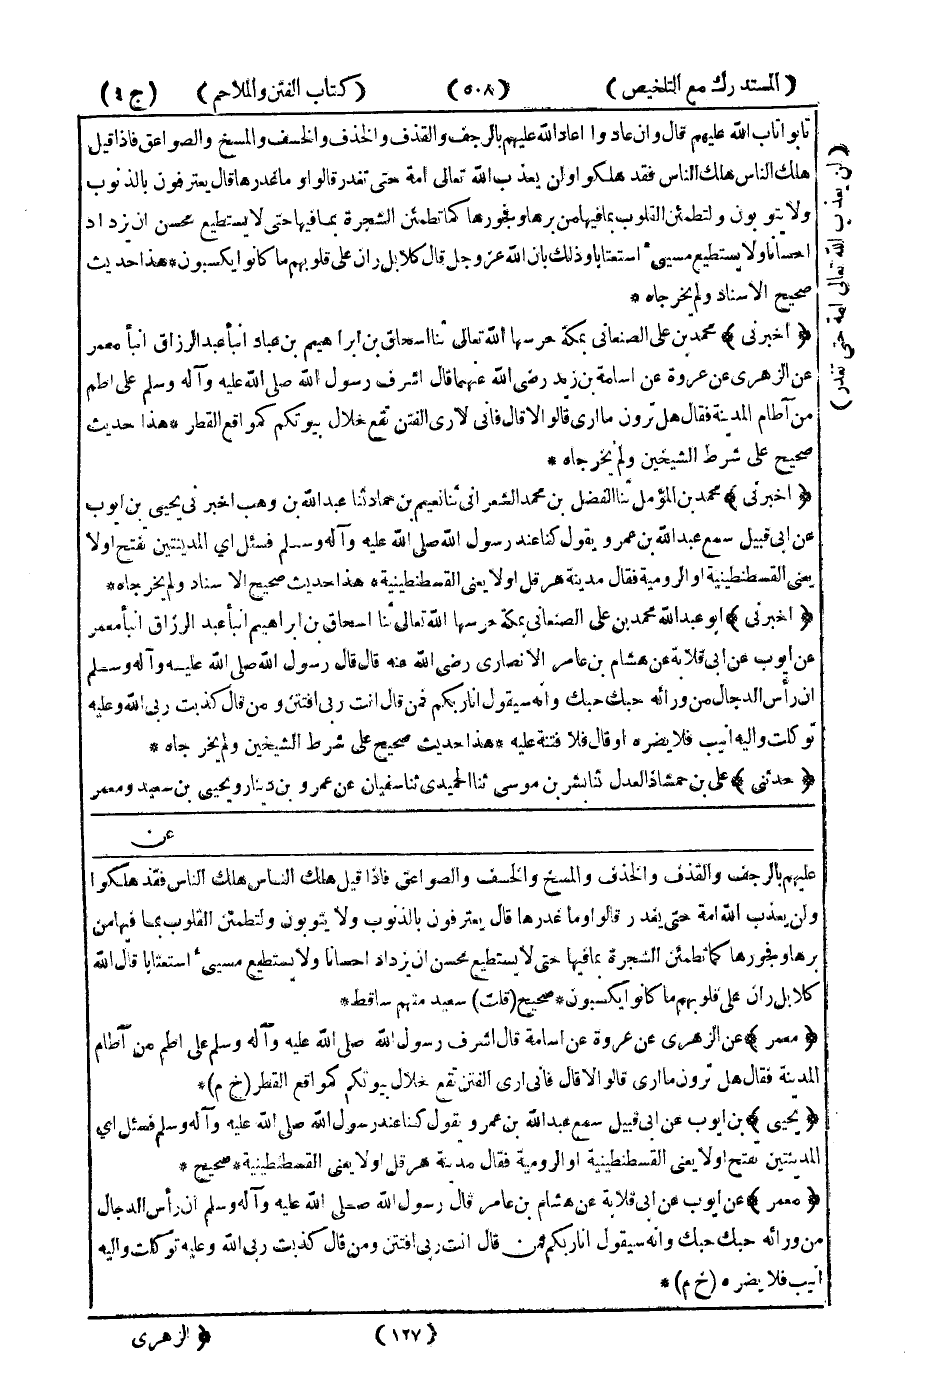 (المستدرك مع التلخيص) (٥٠٨) (كتاب الفتن والملاحم) (ج ٤)
تابوا تاب الله عليهم قال وان عادوا اعاد الله عليهم بالرجف والقذف والخذف والخسف والمسخ والصواعق فاذا قيل
هلك الناس هلك الناس فقد هلكوا ولن يعذب الله تعالى امة حتى تغدر قالوا وما غدرها قال يعترفون بالذنوب
ولا يتوبون ولتطمئن القلوب بمافيها من برها وفجورها كما تطمئن الشجرة بمافيها حتى لا يستطيع محسن ان يزداد
احسانا ولا يستطيع مسيىء استعتابا وذلك بان الله عز وجل قال كلا بل ران على قلوبهم ما كانوا يكسبون * هذا حديث
صحيح الاسناد ولم يخرجاه *
﴿ اخبرنى ﴾ محمد بن على الصنعانى بمكة حرسها الله تعالى ثنا اسحاق بن ابراهيم بن عباد انبأ عبدالرزاق انبأ معمر
عن الزهرى عن عروة عن اسامة بن زيد رضى الله عنهما قال اشرف رسول الله صلى الله عليه وآله وسلم على اطم
من آطام المدينة فقال هل ترون ما ارى قالوا لا قال فانى لارى الفتن تقع خلال بيوتكم كمواقع القطر * هذا حديث
صحيح على شرط الشيخين ولم يخرجاه *
﴿ اخبرنى ﴾ محمد بن المؤمل ثنا الفضل بن محمد الشعرانى ثنا نعيم بن حماد ثنا عبدالله بن وهب اخبرنى يحيى بن ايوب
عن ابى قبيل سمع عبدالله بن عمرو يقول كنا عند رسول الله صلى الله عليه وآله وسلم فسئل اي المدينتين تفتح اولا
يعنى القسطنطينية او الرومية فقال مدينة هرقل اولا يعنى القسطنطينية * هذا حديث صحيح الاسناد ولم يخرجاه *
﴿ اخبرنى ﴾ ابو عبدالله محمد بن على الصنعانى بمكة حرسها الله تعالى ثنا اسحاق بن ابراهيم انبأ عبد الرزاق انبأ معمر
عن ايوب عن ابى قلابة عن هشام بن عامر الانصارى رضى الله عنه قال قال رسول الله صلى الله عليه وآله وسلم
ان رأس الدجال من ورائه حبك حبك وانه سيقول انا ربكم فمن قال انت ربى افتتن ومن قال كذبت ربى الله وعليه
توكلت واليه انيب فلا يضره او قال فلا فتنة عليه * هذا حديث صحيح على شرط الشيخين ولم يخرجاه *
﴿ حدثنى ﴾ على بن حمشاذ العدل ثنا بشر بن موسى ثنا الحميدى ثنا سفيان عن عمرو بن دينار ويحيى بن سعيد ومعمر
عن
(لن يعذب الله تعالى امة حتى تغدر)
عليهم بالرجف والقذف والخذف والمسخ والخسف والصواعق فاذا قيل هلك الناس هلك الناس فقد هلكوا
ولن يعذب الله امة حتى يغدر قالوا وما غدرها قال يعترفون بالذنوب ولا يتوبون ولتطمئن القلوب بما فيها من
برها وفجورها كما تطمئن الشجرة بمافيها حتى لا يستطيع محسن ان يزداد احسانا ولا يستطيع مسيىء استعتابا قال الله
كلا بل ران على قلوبهم ما كانوا يكسبون * صحيح (قلت) سعيد متهم ساقط *
﴿ معمر ﴾ عن الزهرى عن عروة عن اسامة قال اشرف رسول الله صلى الله عليه وآله وسلم على اطم من آطام
المدينة فقال هل ترون ما ارى قالوا لا قال فانى ارى الفتن تقع خلال بيوتكم كمواقع القطر (خ م) *
﴿ يحيى ﴾ بن ايوب عن ابى قبيل سمع عبدالله بن عمرو يقول كنا عند رسول الله صلى الله عليه وآله وسلم فسئل اي
المدينتين تفتح اولا يعنى القسطنطينية او الرومية فقال مدينة هرقل اولا يعنى القسطنطينية * صحيح *
﴿ معمر ﴾ عن ايوب عن ابى قلابة عن هشام بن عامر قال رسول الله صلى الله عليه وآله وسلم ان رأس الدجال
من ورائه حبك حبك وانه سيقول انا ربكم فمن قال انت ربى افتتن ومن قال كذبت ربى الله وعليه توكلت واليه
انيب فلا يضره (خ م) *
(١٢٧) ﴿ الزهرى